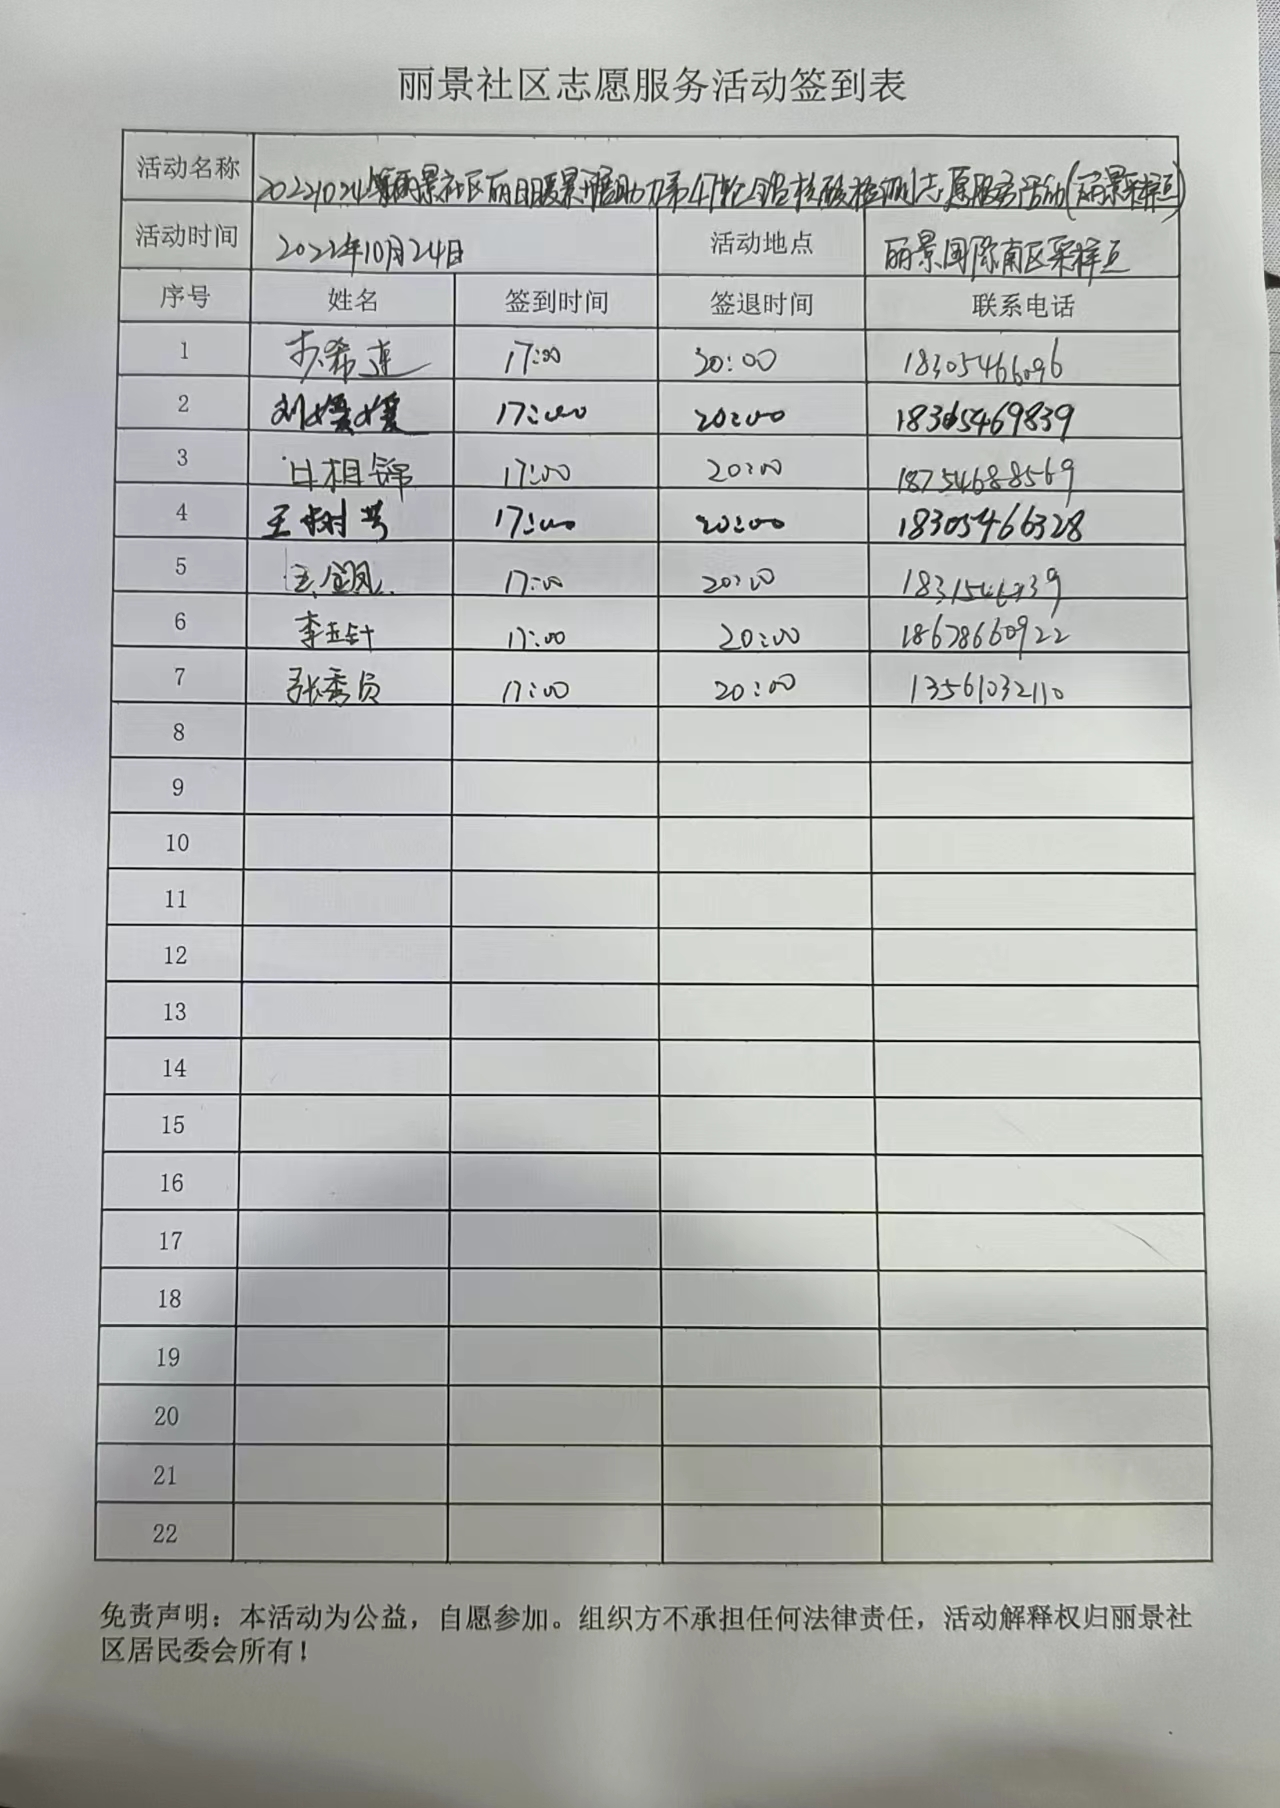 丽景社区志愿服务活动签到表
活动名称 20221024丽景社区 助力第47轮全员核酸检测志愿服务活动(丽景采样点)
活动时间 2022年10月24日 活动地点 丽景国际南区采样点
序号 姓名 签到时间 签退时间 联系电话
1 希莲 17:00 20:00 18305466096
2 刘媛媛 17:00 20:00 18305469839
3 相锦 17:00 20:00 18754688569
4 王树 17:00 20:00 18305466328
5 17:00 20:00
6 李 17:00 20:00 18678660922
7 张秀员 17:00 20:00 13561032110
8
9
10
11
12
13
14
15
16
17
18
19
20
21
22
免责声明：本活动为公益，自愿参加。组织方不承担任何法律责任，活动解释权归丽景社
区居民委会所有！